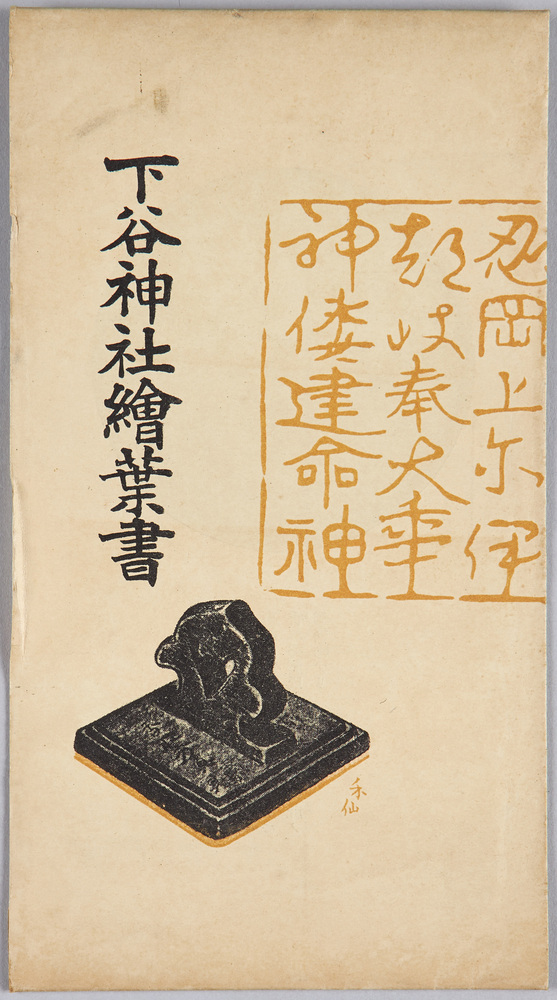 忍岡上尓伊
都岐奉大年
神倭建命神
下谷神社繪葉書
禾仙